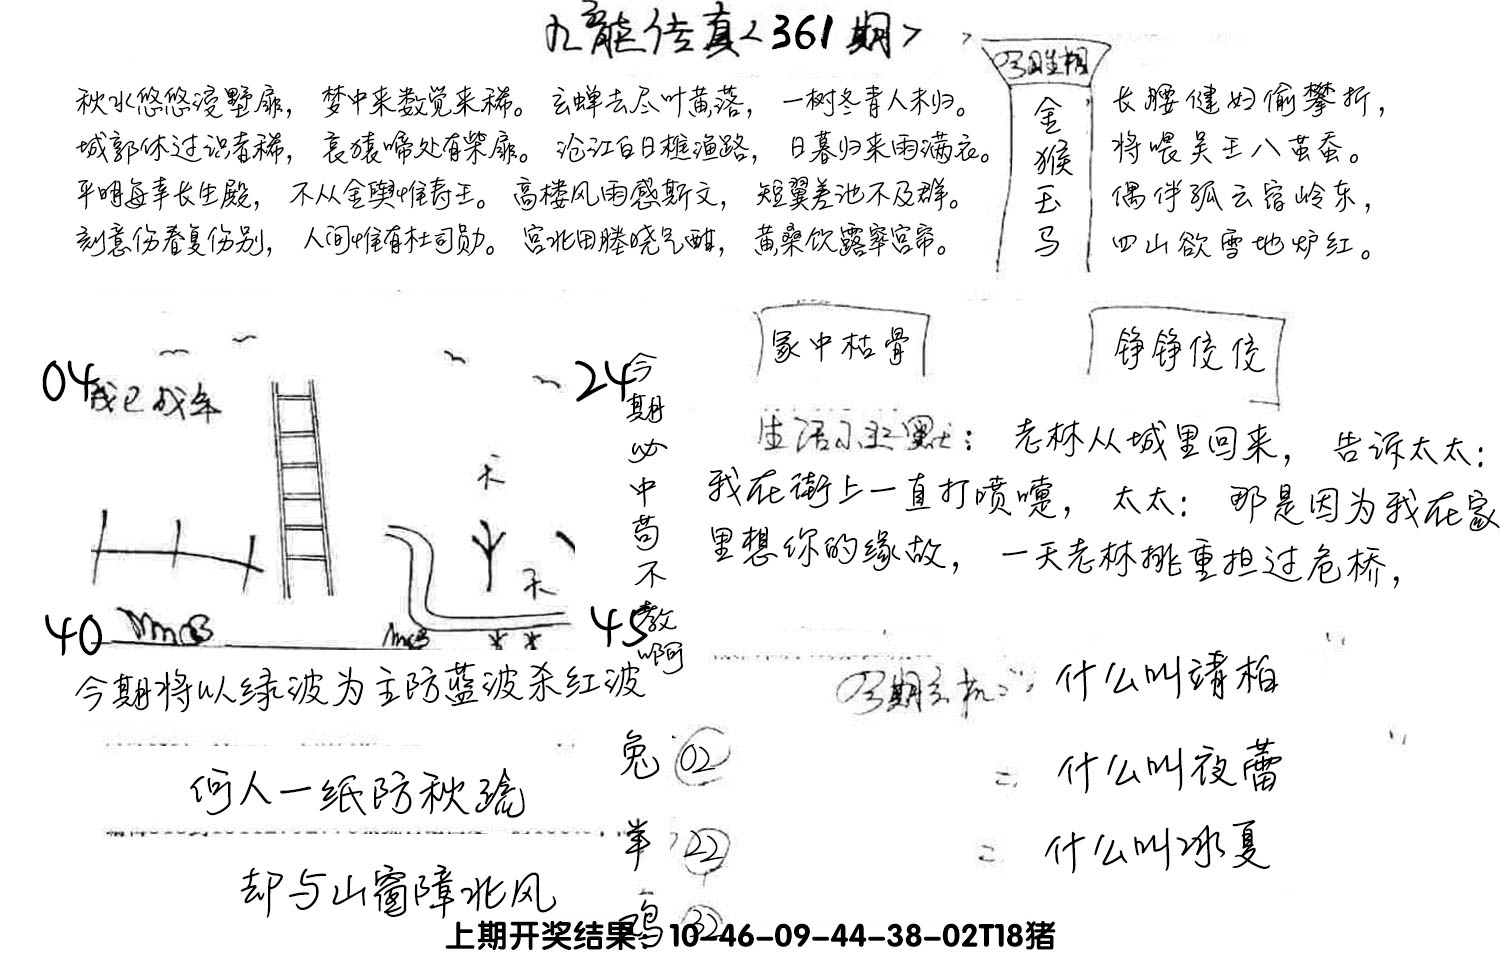 九龙传真<361期>
今日生相
秋水悠悠浸墅扉，梦中来数觉来稀。玄蝉去尽叶黄落，一树冬青人未归。
城郭休过识者稀，哀猿啼处有柴扉。沧江白日樵渔路，日暮归来雨满衣。
平明每幸长生殿，不从金舆惟寿王。高楼风雨感斯文，短翼差池不及群。
刻意伤春复伤别，人间惟有杜司勋。宫北田塍晓气酣，黄桑饮露窣宫帘。
金猴玉马
长腰健妇偷攀折，
将喂吴王八茧蚕。
偶伴孤云宿岭东，
四山欲雪地炉红。
冢中枯骨
铮铮佼佼
04
我已成年
24
今期必中苟不教啊
天
禾
40
45
生活小幽默：老林从城里回来，告诉太太：
我在街上一直打喷嚏，太太：那是因为我在家
里想你的缘故，一天老林挑重担过危桥，
今期将以绿波为主防蓝波杀红波
今期玄机：什么叫靖柏
什么叫夜蕾
什么叫冰夏
何人一纸防秋疏
却与山窗障北风
兔 02
羊 22
鸡 32
上期开奖结果：10-46-09-44-38-02T18猪